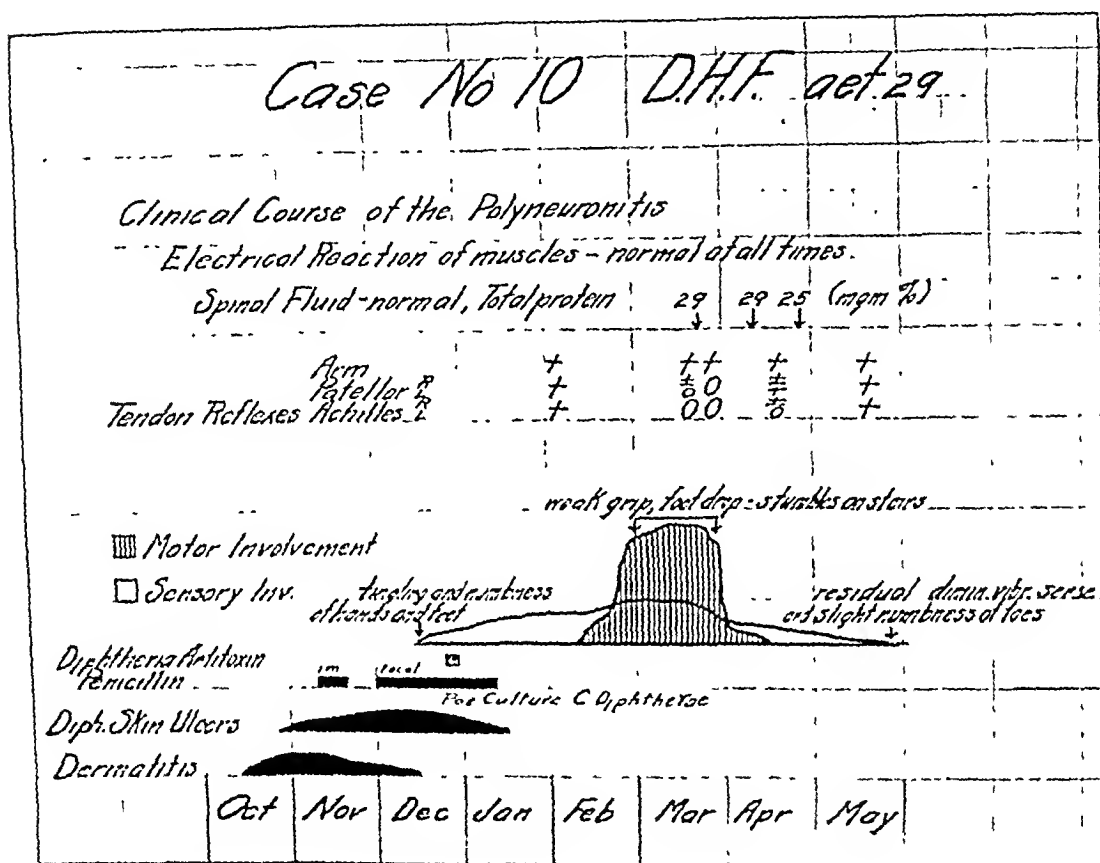 Case No 10 D.H.F. aet. 29
Clinical Course of the Polyneuronitis
Electrical Reaction of muscles - normal at all times.
Spinal Fluid - normal, Total protein 29 29 25 (mgm %)
Arm + ++ + +
Patellar R L + ± 0 0 ± + +
Tendon Reflexes Achilles R L + 00 ± 0 +
weak grip, foot drop - stumbles on stairs
Motor Involvement
Sensory Inv. tingling and numbness residual dimin. vibr. sense
of hands and feet and slight numbness of toes
Diphtheria Antitoxin
Penicillin im local
Pos Culture C Diphtheriae
Diph. Skin Ulcers
Dermatitis
Oct Nov Dec Jan Feb Mar Apr May